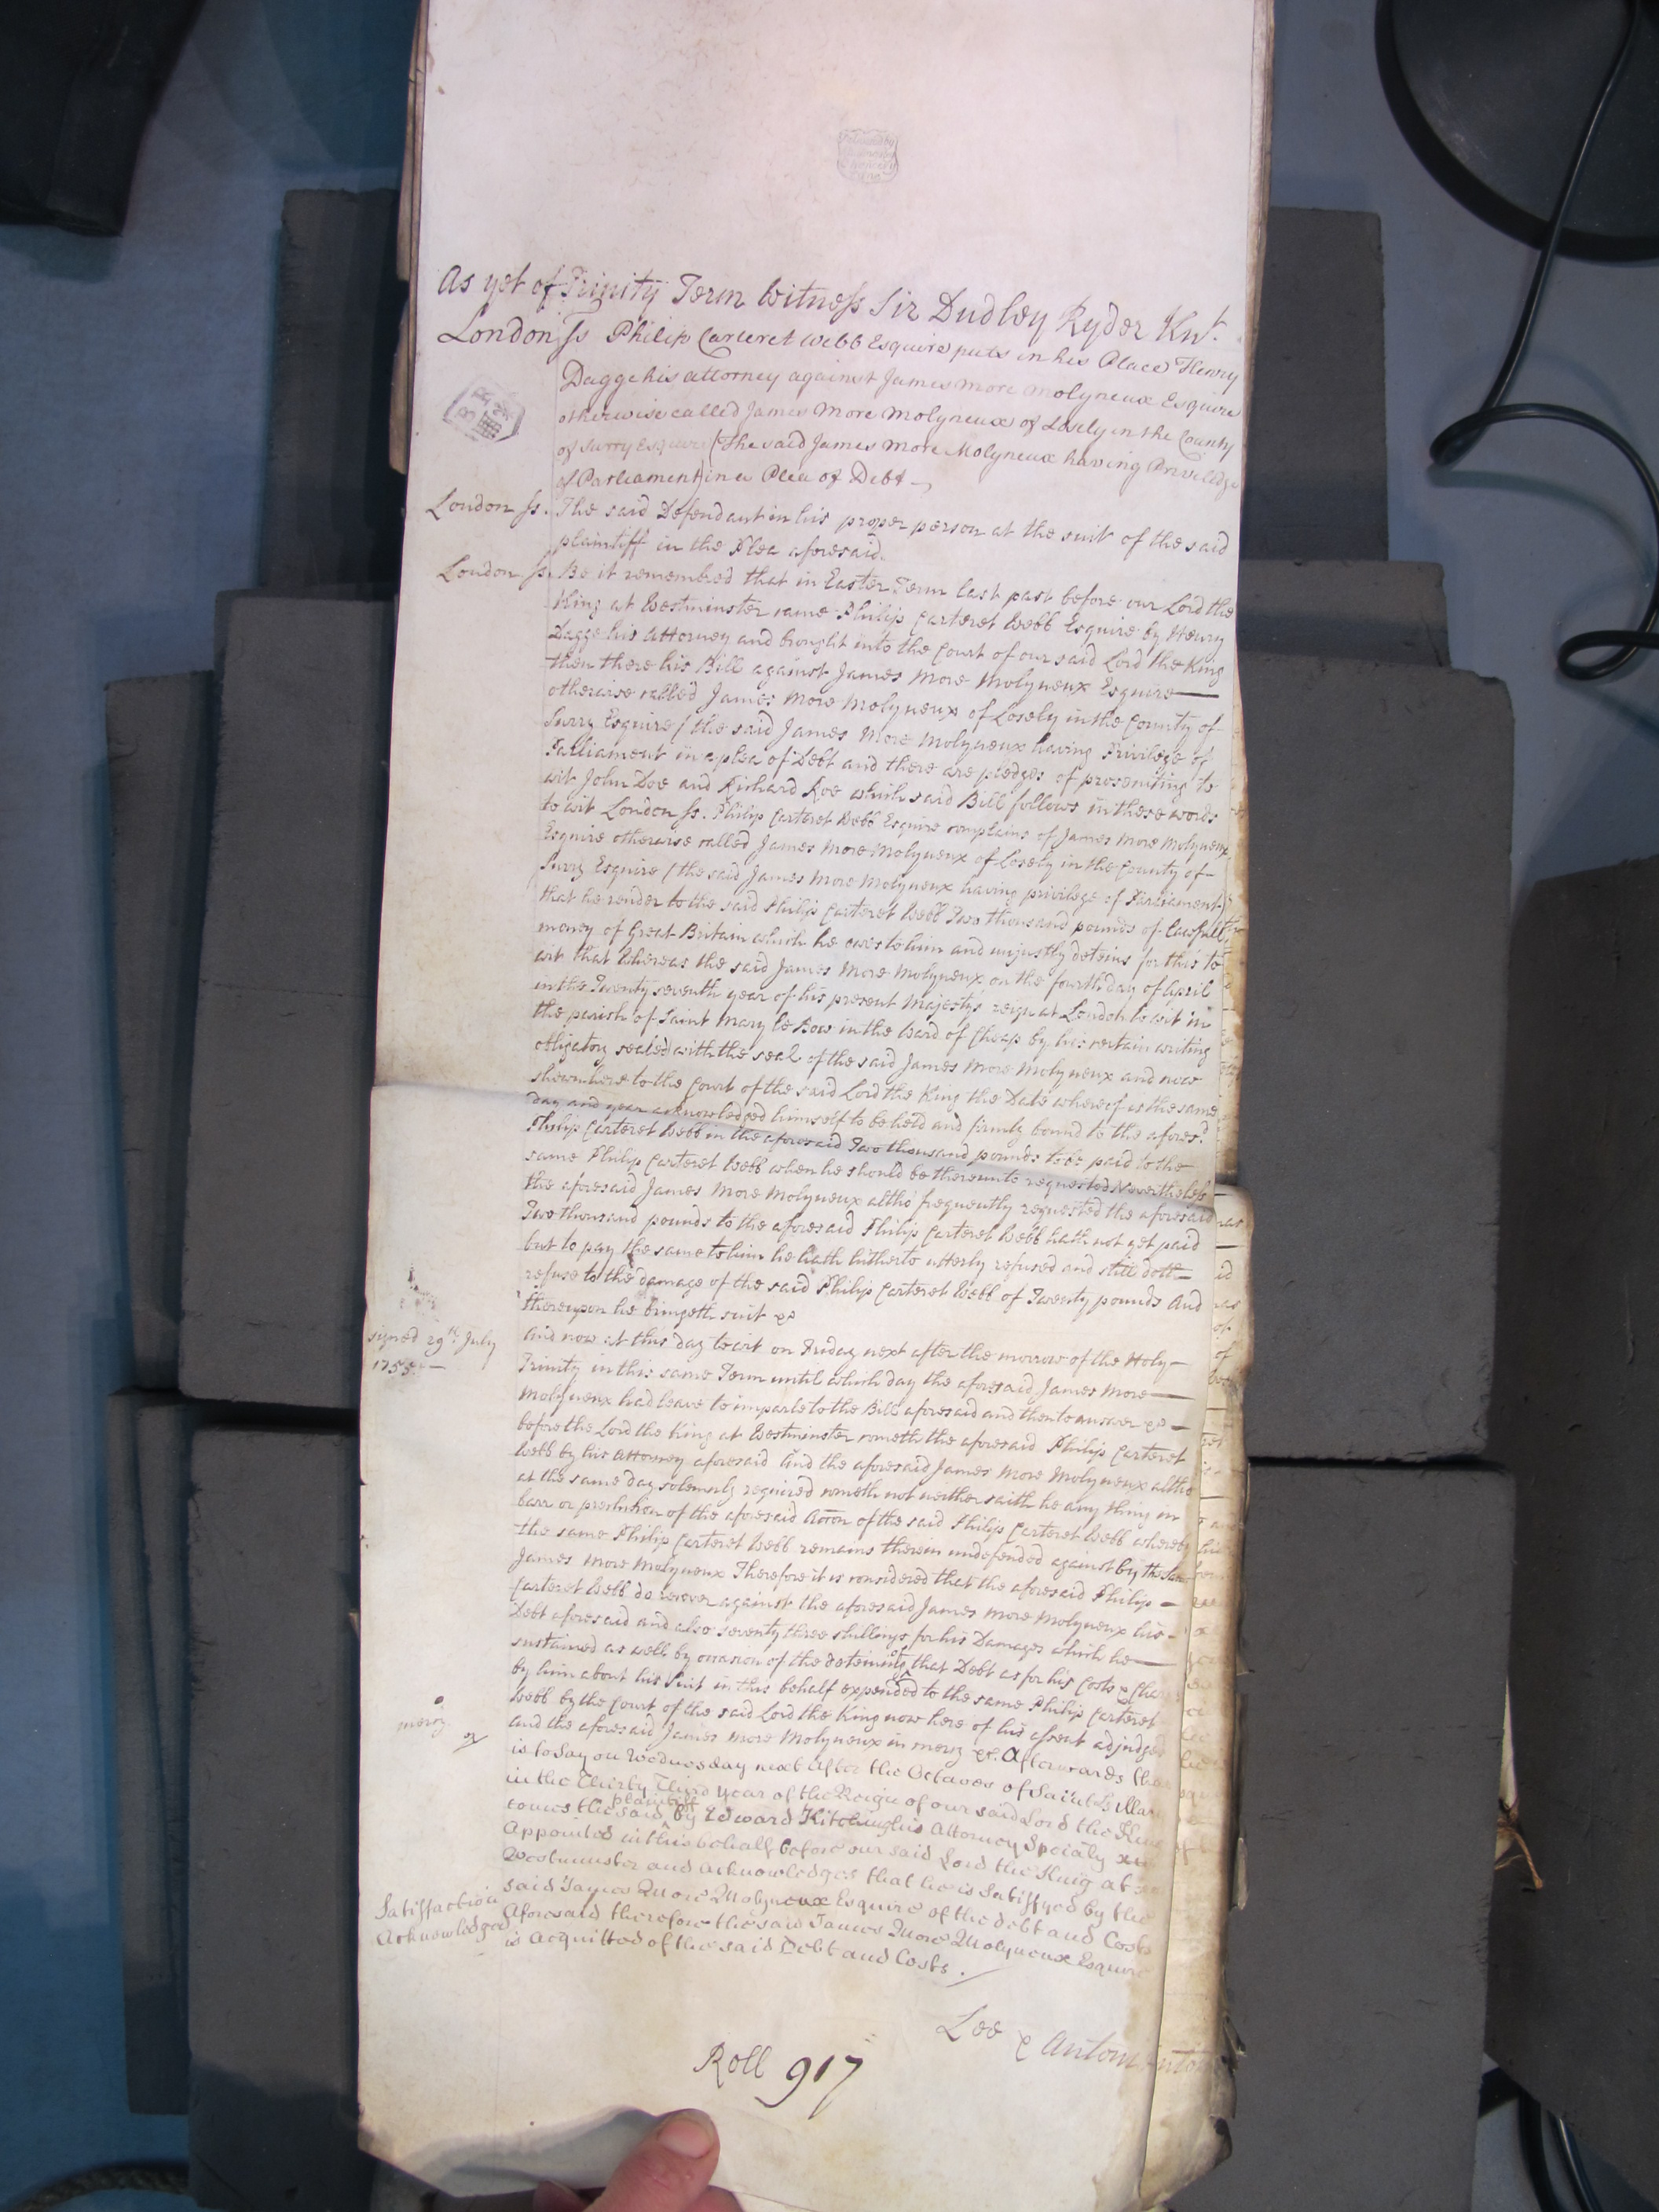 As yet of Trinity Term Witness Sir Dudley Ryder Knt.
London Ss Philip Carteret Webb Esquire puts in his Place Henry
Dagge his attorney against James more molyneux Esquire
otherwise called James More Molyneux of Losely in the County
of Surry Esquire (The said James More Molyneux having Priviledge
of Parliament) in a Plea of Debt
London Ss. The said Defendant in his proper person at the suit of the said
plaintiff in the Plea aforesaid.
London Ss. Be it remembred that in Easter Term last past before our Lord the
King at Westminster came Philip Carteret Webb Esquire by Henry
Dagge his Attorney and brought into the Court of our said Lord the King
then there his Bill against James More Molyneux Esquire
otherwise called James More Molyneux of Losely in the County of
Surry Esquire (the said James More Molyneux having Privilege of
Parliament in a plea of Debt and there are pledges of prosecuting to
wit John Doe and Richard Roe which said Bill follows in these words
to wit London Ss. Philip Carteret Webb Esquire complains of James More Molyneux
Esquire otherwise called James More Molyneux of Losely in the County of
Surry Esquire (the said James More Molyneux having privilege of Parliament)
that he render to the said Philip Carteret Webb Two thousand pounds of lawfull
money of Great Britain which he owes to him and unjustly detains for this to
wit that Whereas the said James More Molyneux on the fourth day of April
in the Twenty seventh year of his present Majestys reign at London to wit in
the parish of Saint Mary le Bow in the Ward of Cheap by his certain writing
obligatory sealed with the seal of the said James More Molyneux and now
shewn here to the Court of the said Lord the King the Date whereof is the same
day and year acknowledged himself to be held and firmly bound to the afores.d
Philip Carteret Webb in the aforesaid Two thousand pounds to be paid to the
same Philip Carteret Webb when he should be thereunto requested Nevertheless
the aforesaid James More Molyneux altho' frequently requested the aforesaid
Two thousand pounds to the aforesaid Philip Carteret Webb hath not yet paid
but to pay the same to him he hath hitherto utterly refused and still doth
refuse to the damage of the said Philip Carteret Webb of Twenty pounds And
thereupon he bringeth suit &c
signed 29th. July
1755.
And now at this day to wit on Friday next after the morrow of the Holy
Trinity in this same Term until which day the aforesaid James More
Molyneux had leave to imparle to the Bill aforesaid and then to answer &c
before the Lord the King at Westminster cometh the aforesaid Philip Carteret
Webb by his Attorney aforesaid And the aforesaid James More Molyneux altho
at the same day solemnly required cometh not neither saith he any thing in
barr or preclusion of the aforesaid Action of the said Philip Carteret Webb whereby
the same Philip Carteret Webb remains therein undefended against by the said
James More Molyneux Therefore it is considered that the aforesaid Philip
Carteret Webb do recover against the aforesaid James More Molyneux his
Debt aforesaid and also seventy three shillings for his Damages which he
sustained as well by occasion of the detaining of that Debt as for his Costs &
by him about his Suit in this behalf expended to the same Philip Carteret
Webb by the Court of the said Lord the King now here of his assent adjudged
mercy
and the aforesaid James More Molyneux in mercy &c. Afterwards that
is to Say on Wednesday next after the Octaves of Saint Hillary
in the Thirty Third year of the Reign of our said Lord the King
comes the said plaintiff by Edward Kitching his Attorney Specialy
Appointed in this behalf before our said Lord the King at
Westminster and acknowledges that he is Satisfyed by the
Satisfaction
Acknowledged
said James More Molyneux Esquire of the debt and Costs
Aforesaid therefore the said James More Molyneux Esquire
is Acquitted of the said Debt and Costs.
Lee & Antoni
Roll 917